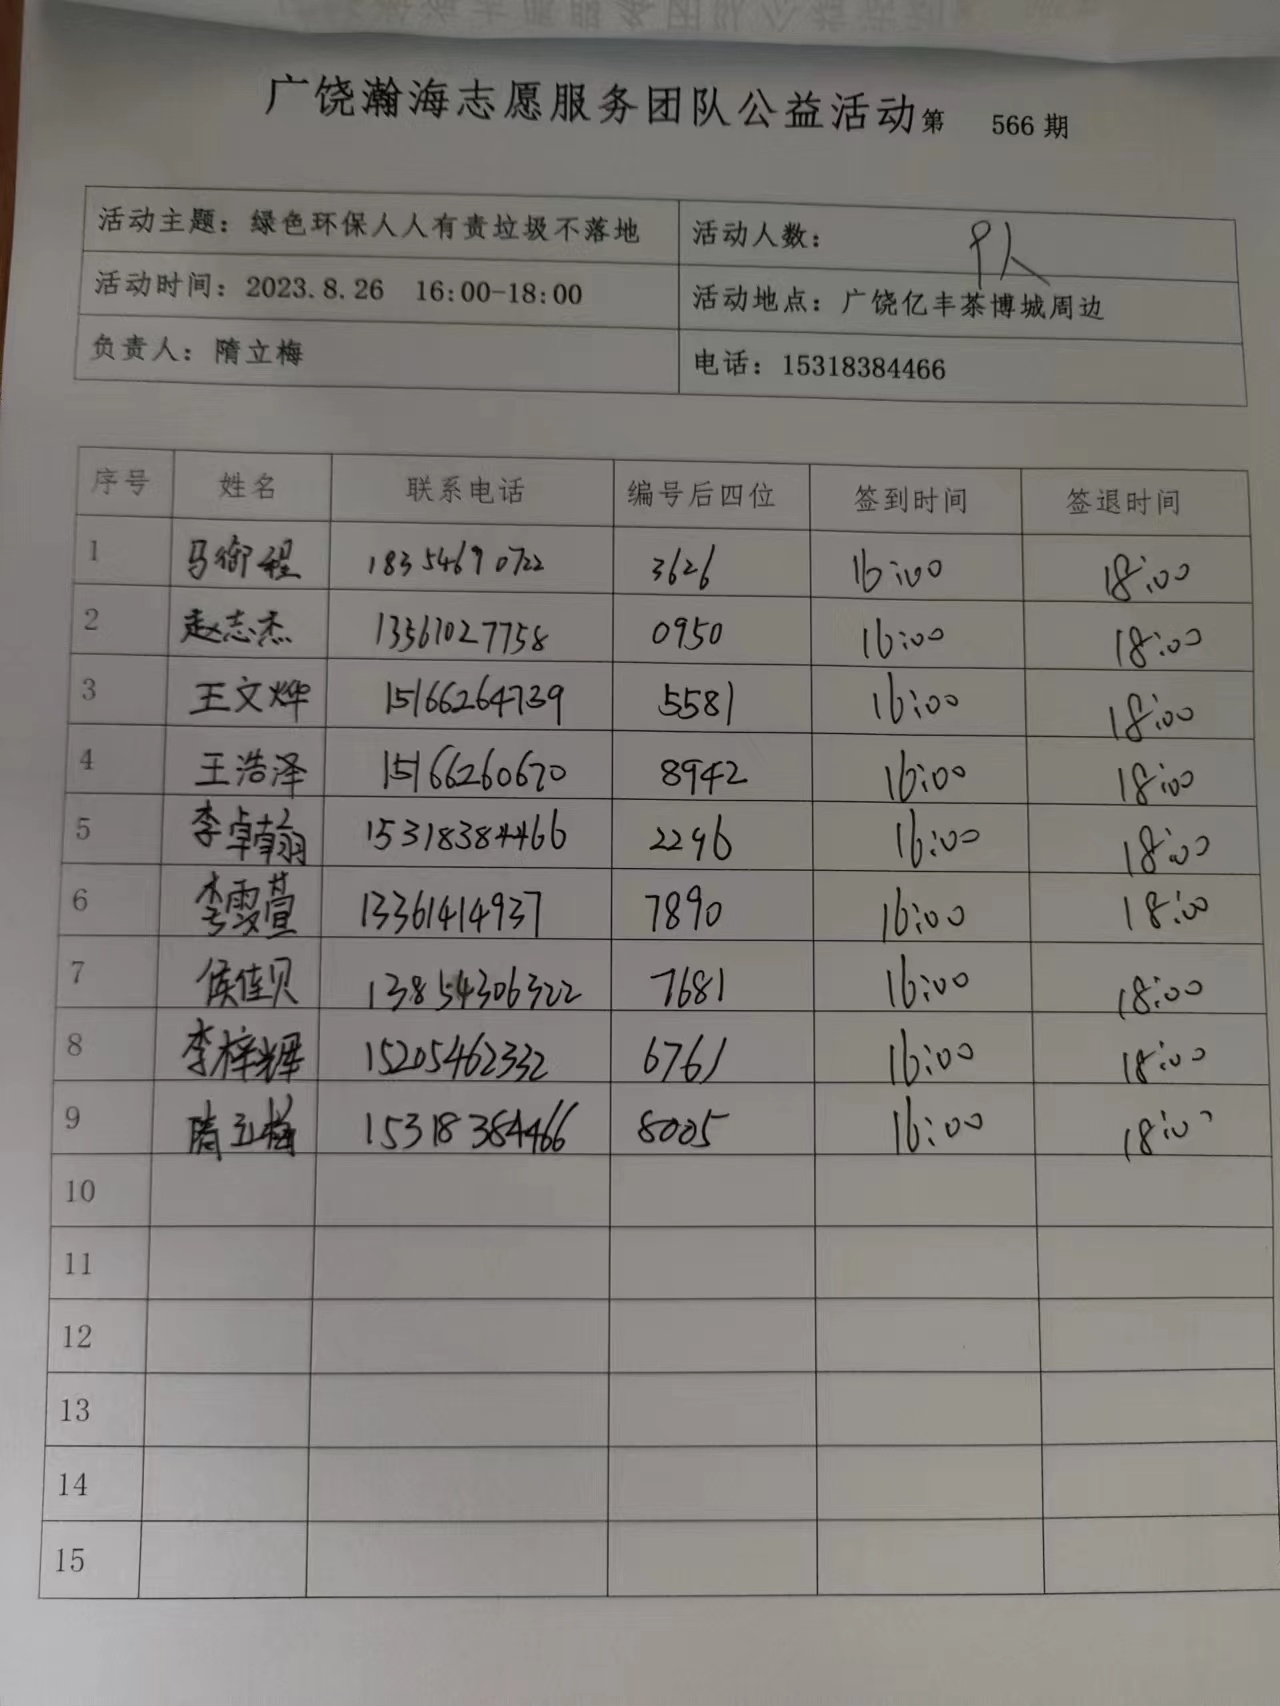 广饶瀚海志愿服务团队公益活动第 566 期
活动主题：绿色环保人人有责垃圾不落地 活动人数： 9人
活动时间：2023.8.26 16:00-18:00 活动地点：广饶亿丰茶博城周边
负责人：隋立梅 电话：15318384466
序号 姓名 联系电话 编号后四位 签到时间 签退时间
1 马衙程 18354690722 3626 16:00 18:00
2 赵志杰 13361027758 0950 16:00 18:00
3 王文烨 15166264739 5581 16:00 18:00
4 王浩泽 15166260670 8942 16:00 18:00
5 李卓翰 15318384466 2296 16:00 18:00
6 李雯萱 13361414937 7890 16:00 18:00
7 侯佳贝 13854306322 7681 16:00 18:00
8 李梓辉 15205462332 6761 16:00 18:00
9 隋立梅 15318384466 8005 16:00 18:00
10
11
12
13
14
15